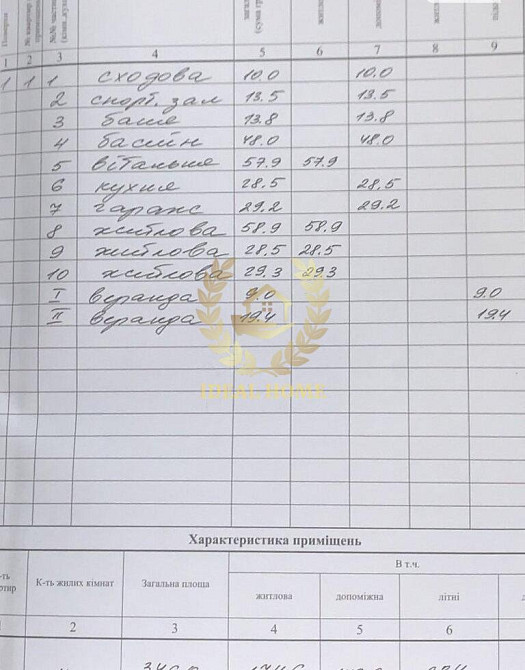 1 2 3 4 5 6 7 8 9
1 1 1 сходова 10.0 10.0
2 спорт. зал 13.5 13.5
3 баня 13.8 13.8
4 басейн 48.0 48.0
5 вітальня 57.9 57.9
6 кухня 28.5 28.5
7 гараж 29.2 29.2
8 житлова 58.9 58.9
9 житлова 28.5 28.5
10 житлова 29.3 29.3
I веранда 9.0 9.0
II веранда 19.4 19.4
IDEAL HOME
Характеристика приміщень
К-ть жилих кімнат Загальна площа В т.ч.
житлова допоміжна літні
2 3 4 5 6